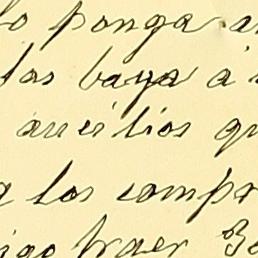 lo ponga a
las baya a
aucilios qu
los compr
igo traer